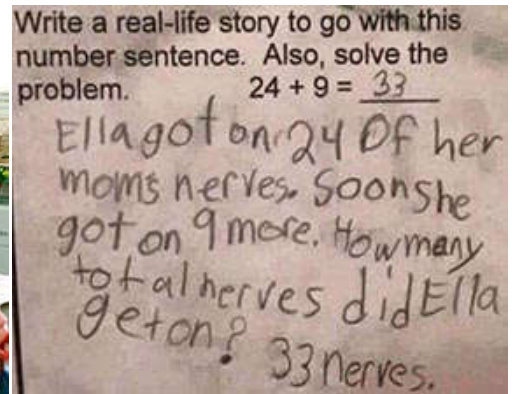 Write a real-life story to go with this
number sentence. Also, solve the
problem. 24 + 9 = 33
Ella got on 24 Of her
moms nerves. Soon she
got on 9 more. How many
total nerves did Ella
get on?
33 nerves.